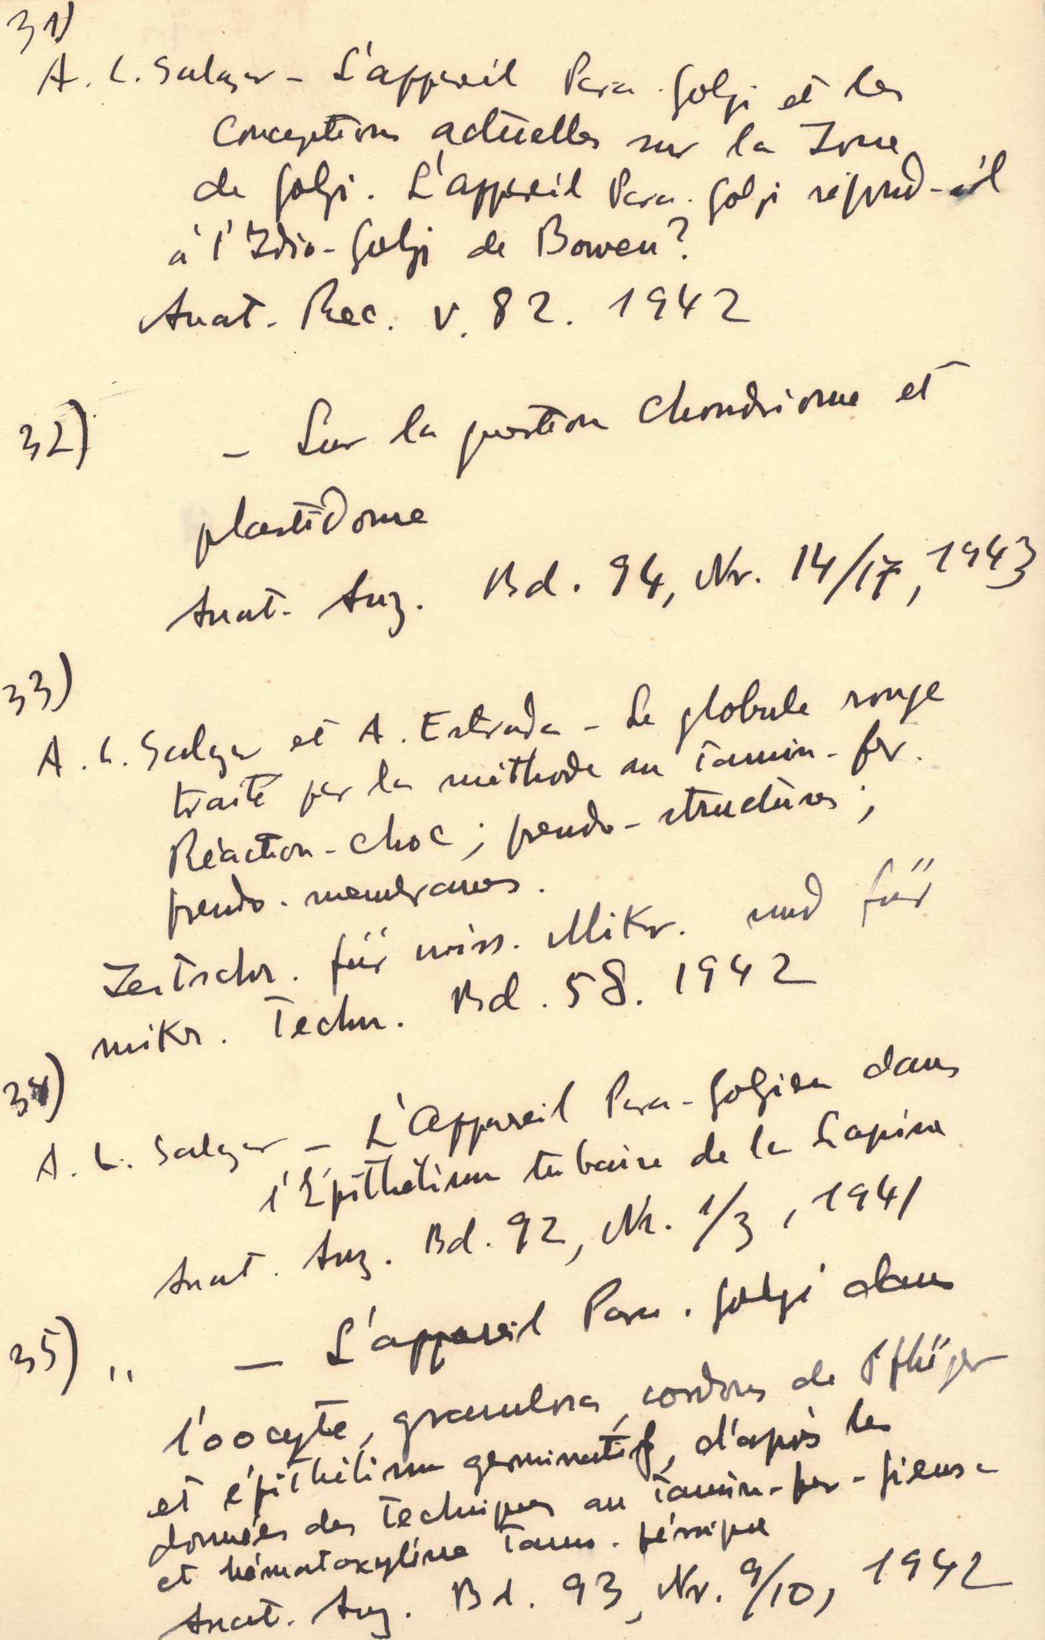 31)
A. L. Salazar – L'appareil Para-Golgi et les
conceptions actuelles sur la Zone
de Golgi. L'appareil Para-Golgi répond-il
à l'Idio-Golgi de Bowen?
Anat. Rec. v. 82. 1942
32) – Sur la question Chondriome et
plastidome
Anat. Anz. Bd. 94, Nr. 14/17, 1943
33)
A. L. Salazar et A. Estrada – Le globule rouge
traité par la méthode au Tannin-fer.
Réaction-choc; pseudo-structures;
pseudo-membranes.
Zeitschr. für wiss. Mikr. und für
mikr. Techn. Bd. 58. 1942
34)
A. L. Salazar – L'Appareil Para-Golgien dans
l'Epithélium tubaire de la Lapine
Anat. Anz. Bd. 92, Nr. 1/3, 1941
35) " – L'appareil Para-Golgi dans
l'oocyte, granulosa, cordons de Pflüger
et épithélium germinatif, d'après les
données des Techniques au Tannin-fer-
et hématoxyline Tann. férrique
Anat. Anz. Bd. 93, Nr. 9/10, 1942